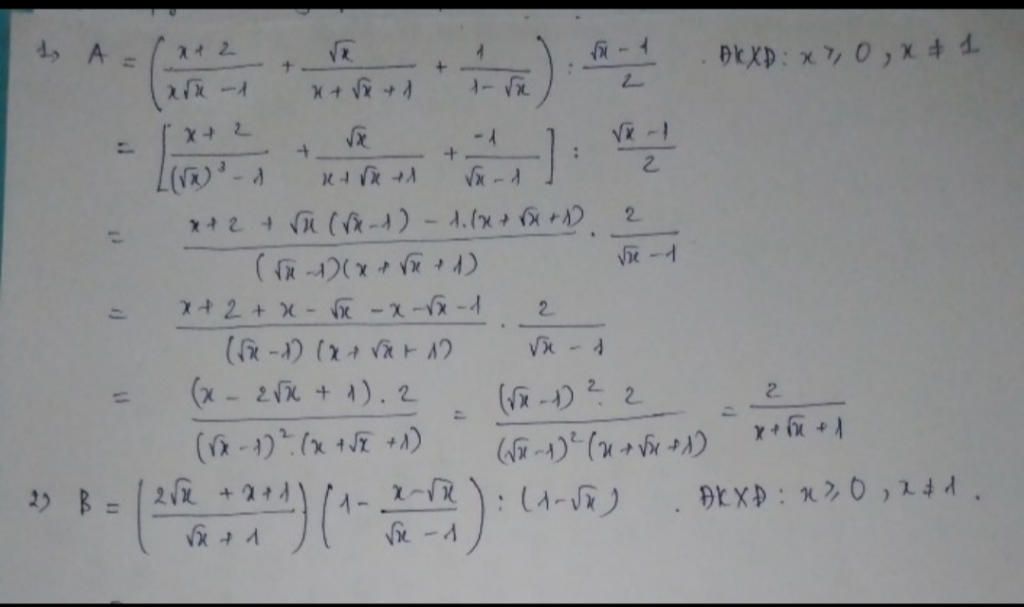 1) A = ( (x + 2)/(x√x - 1) + √x/(x + √x + 1) + 1/(1 - √x) ) : (√x - 1)/2 . ĐKXĐ: x ≥ 0, x ≠ 1
= [ (x + 2)/((√x)³ - 1) + √x/(x + √x + 1) + (-1)/(√x - 1) ] : (√x - 1)/2
= (x + 2 + √x(√x - 1) - 1.(x + √x + 1))/((√x - 1)(x + √x + 1)) . 2/(√x - 1)
= (x + 2 + x - √x - x - √x - 1)/((√x - 1)(x + √x + 1)) . 2/(√x - 1)
= ((x - 2√x + 1).2)/((√x - 1)².(x + √x + 1)) = ((√x - 1)².2)/((√x - 1)²(x + √x + 1)) = 2/(x + √x + 1)
2) B = ( (2√x + x + 1)/(√x + 1) ) ( 1 - (x - √x)/(√x - 1) ) : (1 - √x) . ĐKXĐ: x ≥ 0, x ≠ 1.